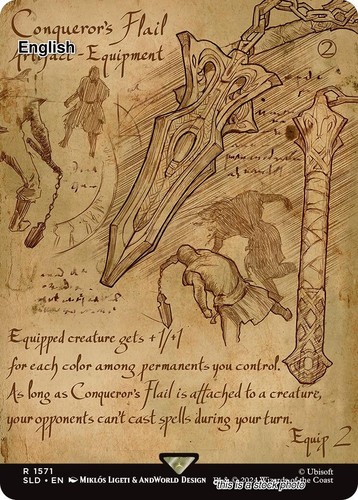 Conqueror's Flail
2
English
Artifact - Equipment
Equipped creature gets +1/+1
for each color among permanents you control.
As long as Conqueror's Flail is attached to a creature,
your opponents can't cast spells during your turn.
Equip 2
R 1571
© Ubisoft
SLD • EN Miklós Ligeti & AndWorld Design
& © 2024 Wizards of the Coast
this is a stock photo